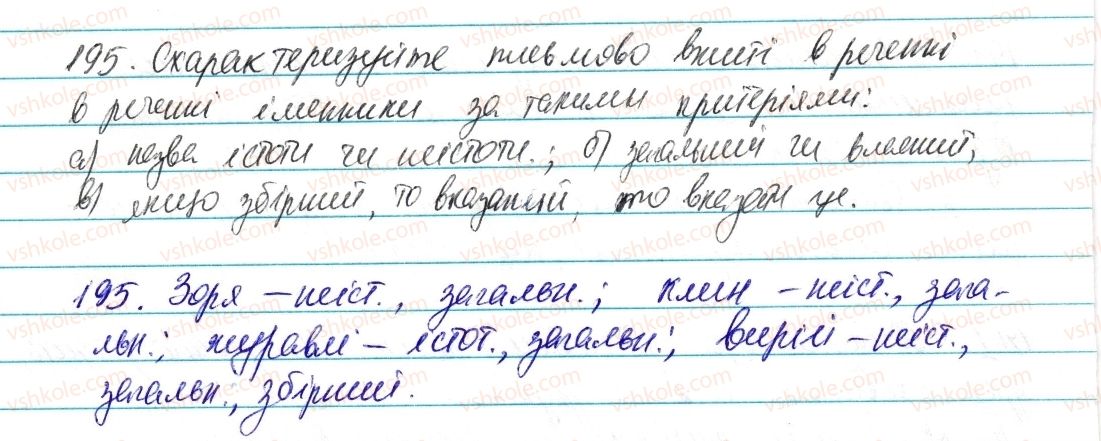 195. Охарактеризуйте письмово вжиті в реченні
в реченні іменники за такими критеріями:
а) назва істоти чи неістоти.; б) загальний чи власний;
в) якщо збірний, то вказаний, то вказати це.
195. Зоря – неіст., загальн.; клин – неіст., зага-
льн.; журавлі – істот., загальн.; вирій – неіст.,
загальн., збірний.